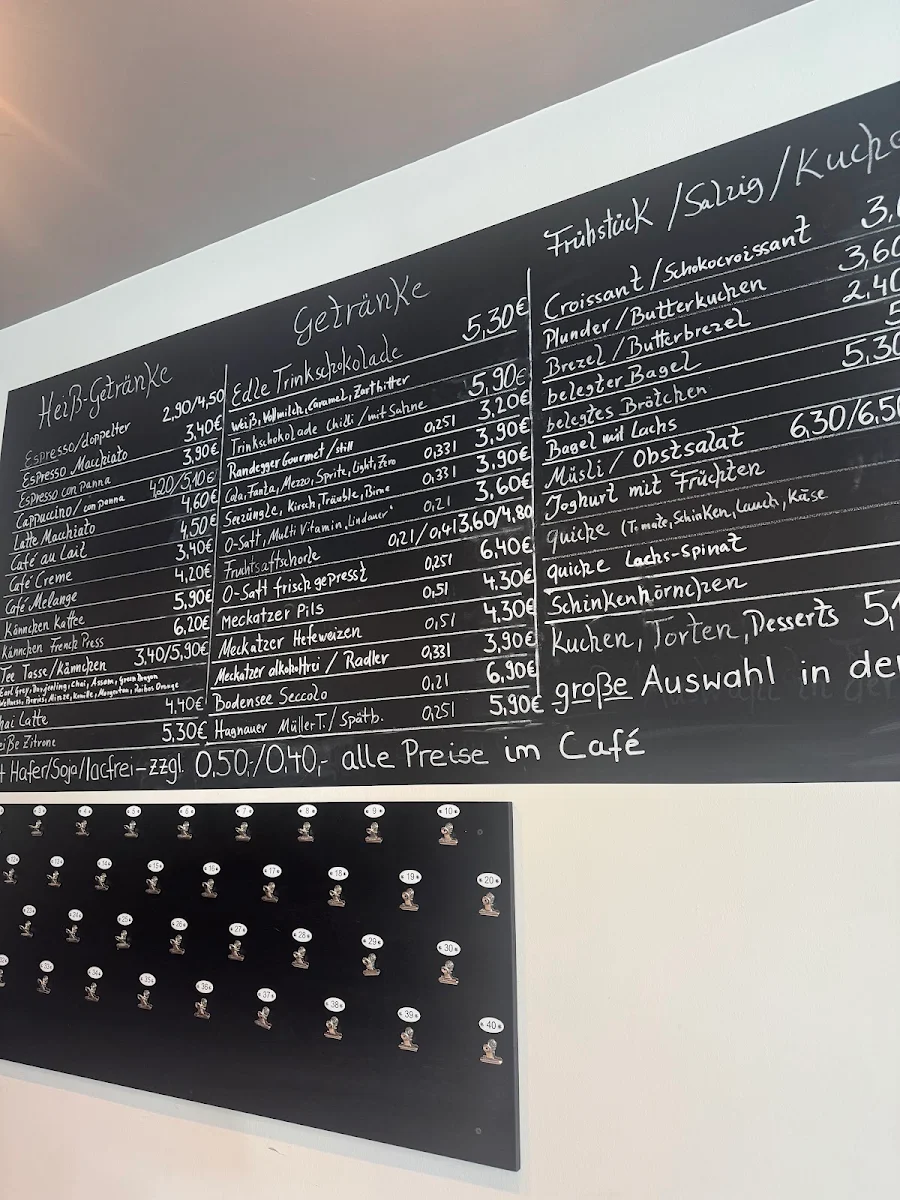 Heiß-Getränke
Espresso/doppelter 2,90/4,50
Espresso Macchiato 3,40€
Espresso con Panna 3,90€
Cappuccino/con panna 4,20/5,10€
Latte Macchiato 4,60€
Café au Lait 4,50€
Café Creme 3,40€
Café Melange 4,20€
Kännchen Kaffee 5,90€
Kännchen French Press 6,20€
Tee Tasse/Kännchen 3,40/5,90€
Earl Grey, Darjeeling, Chai, Assam, Green Dragon
Minze, Kamille, Morgentau, Roibos Orange
Latte 4,40€
Zitrone 5,30€
Getränke
Edle Trinkschokolade 5,30€
weiß, Vollmilch, Caramel, Zartbitter
Trinkschokolade Chilli/mit Sahne 5,90€
Randegger Gourmet/still 0,25l 3,20€
Cola, Fanta, Mezzo, Sprite, Light, Zero 0,33l 3,90€
Seezüngle, Kirsch, Träuble, Birne 0,33l 3,90€
O-Saft, Multi Vitamin "Lindauer" 0,2l 3,60€
Fruchtsaftschorle 0,2l/0,4l 3,60/4,80
O-Saft frisch gepresst 0,25l 6,40€
Meckatzer Pils 0,5l 4,30€
Meckatzer Hefeweizen 0,5l 4,30€
Meckatzer alkoholfrei / Radler 0,33l 3,90€
Bodensee Seccolo 0,2l 6,90€
Hagnauer Müller T./Spätb. 0,25l 5,90€
Frühstück/Salzig/Kuche
Croissant/Schokocroissant 3,
Plunder/Butterkuchen 3,60
Brezel/Butterbrezel 2,40
belegter Bagel 5
belegtes Brötchen 5,30
Bagel mit Lachs
Müsli/Obstsalat 6,30/6,50
Joghurt mit Früchten
quiche (Tomate, Schinken, Lauch, Käse
quiche Lachs-Spinat
Schinkenhörnchen
Kuchen, Torten, Desserts 5,
große Auswahl in der
Hafer/Soja/lacfrei-zzgl. 0,50,-/0,40,- alle Preise im Café
3 4 5 6 7 8 9 10
12 13 14 15 16 17 18 19 20
23 24 25 26 27 28 29 30
32 33 34 35 36 37 38 39 40